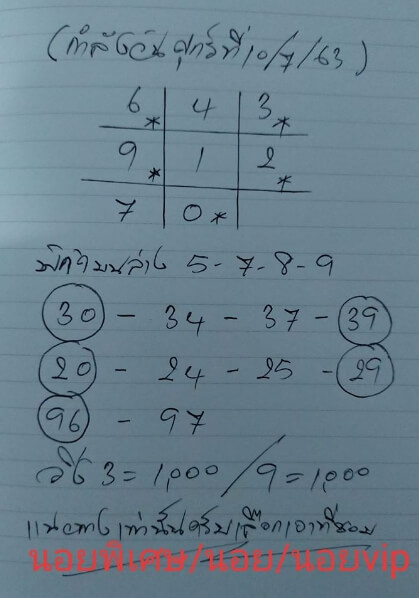 (กำลังวันศุกร์ที่ 10/7/63)
6* 4 3*
9* 1 2*
7 0*
บนล่าง 5-7-8-9
30 - 34 - 37 - 39
20 - 24 - 25 - 29
96 - 97
วิ่ง 3 = 1,000 / 9 = 1,000
แนวทางเท่านั้นครับเลือกเอาที่ชอบ
นอยพิเศษ/นอย/นอยvip